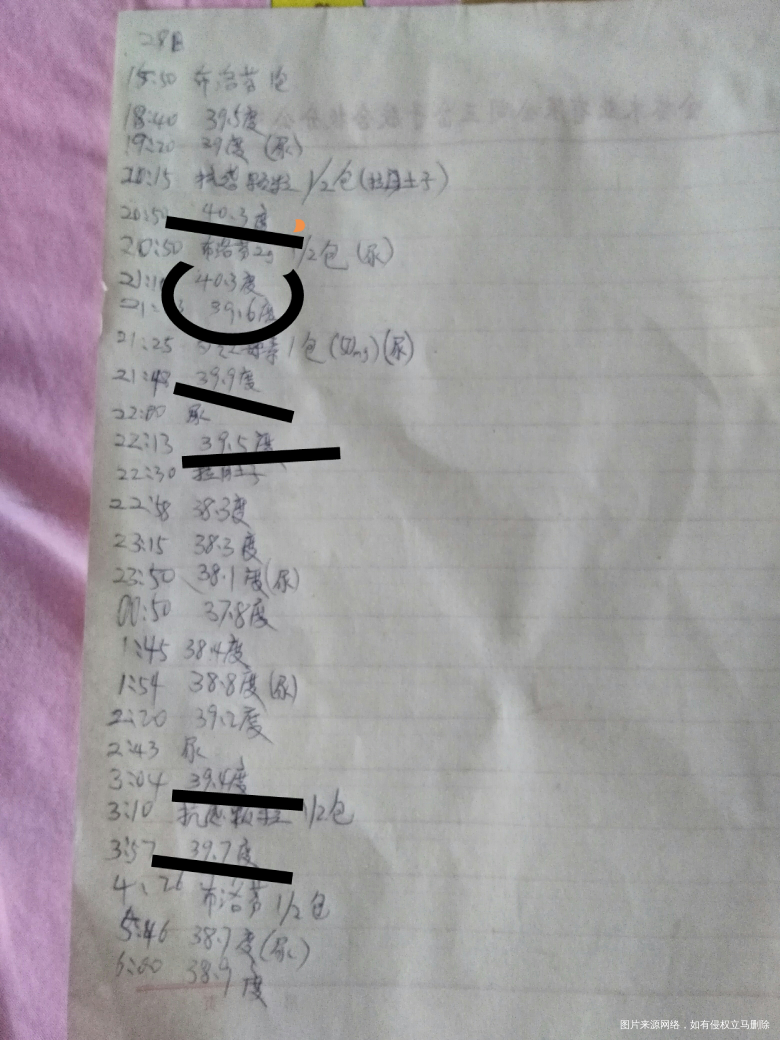 28日
15:50 布洛芬
18:40 39.5度
19:20 39度 (尿)
20:15 抗感颗粒 1/2包(拉肚子)
20:5 40.3度
20:50 布洛芬 1/2包 (尿)
21:1 40.3度
21: 39.6度
21:25 1包 (50mg)(尿)
21:48 39.9度
22:00 尿
22:13 39.5度
22:30 拉肚子
22:58 38.3度
23:15 38.3度
23:50 38.1度(尿)
00:50 37.8度
1:45 38.4度
1:54 38.8度(尿)
2:20 39.2度
2:43 尿
3:04 39.4度
3:10 抗感颗粒 1/2包
3:57 39.7度
4:26 布洛芬 1/2包
5:46 38.7度(尿)
6:00 38.9度
图片来源网络，如有侵权立马删除